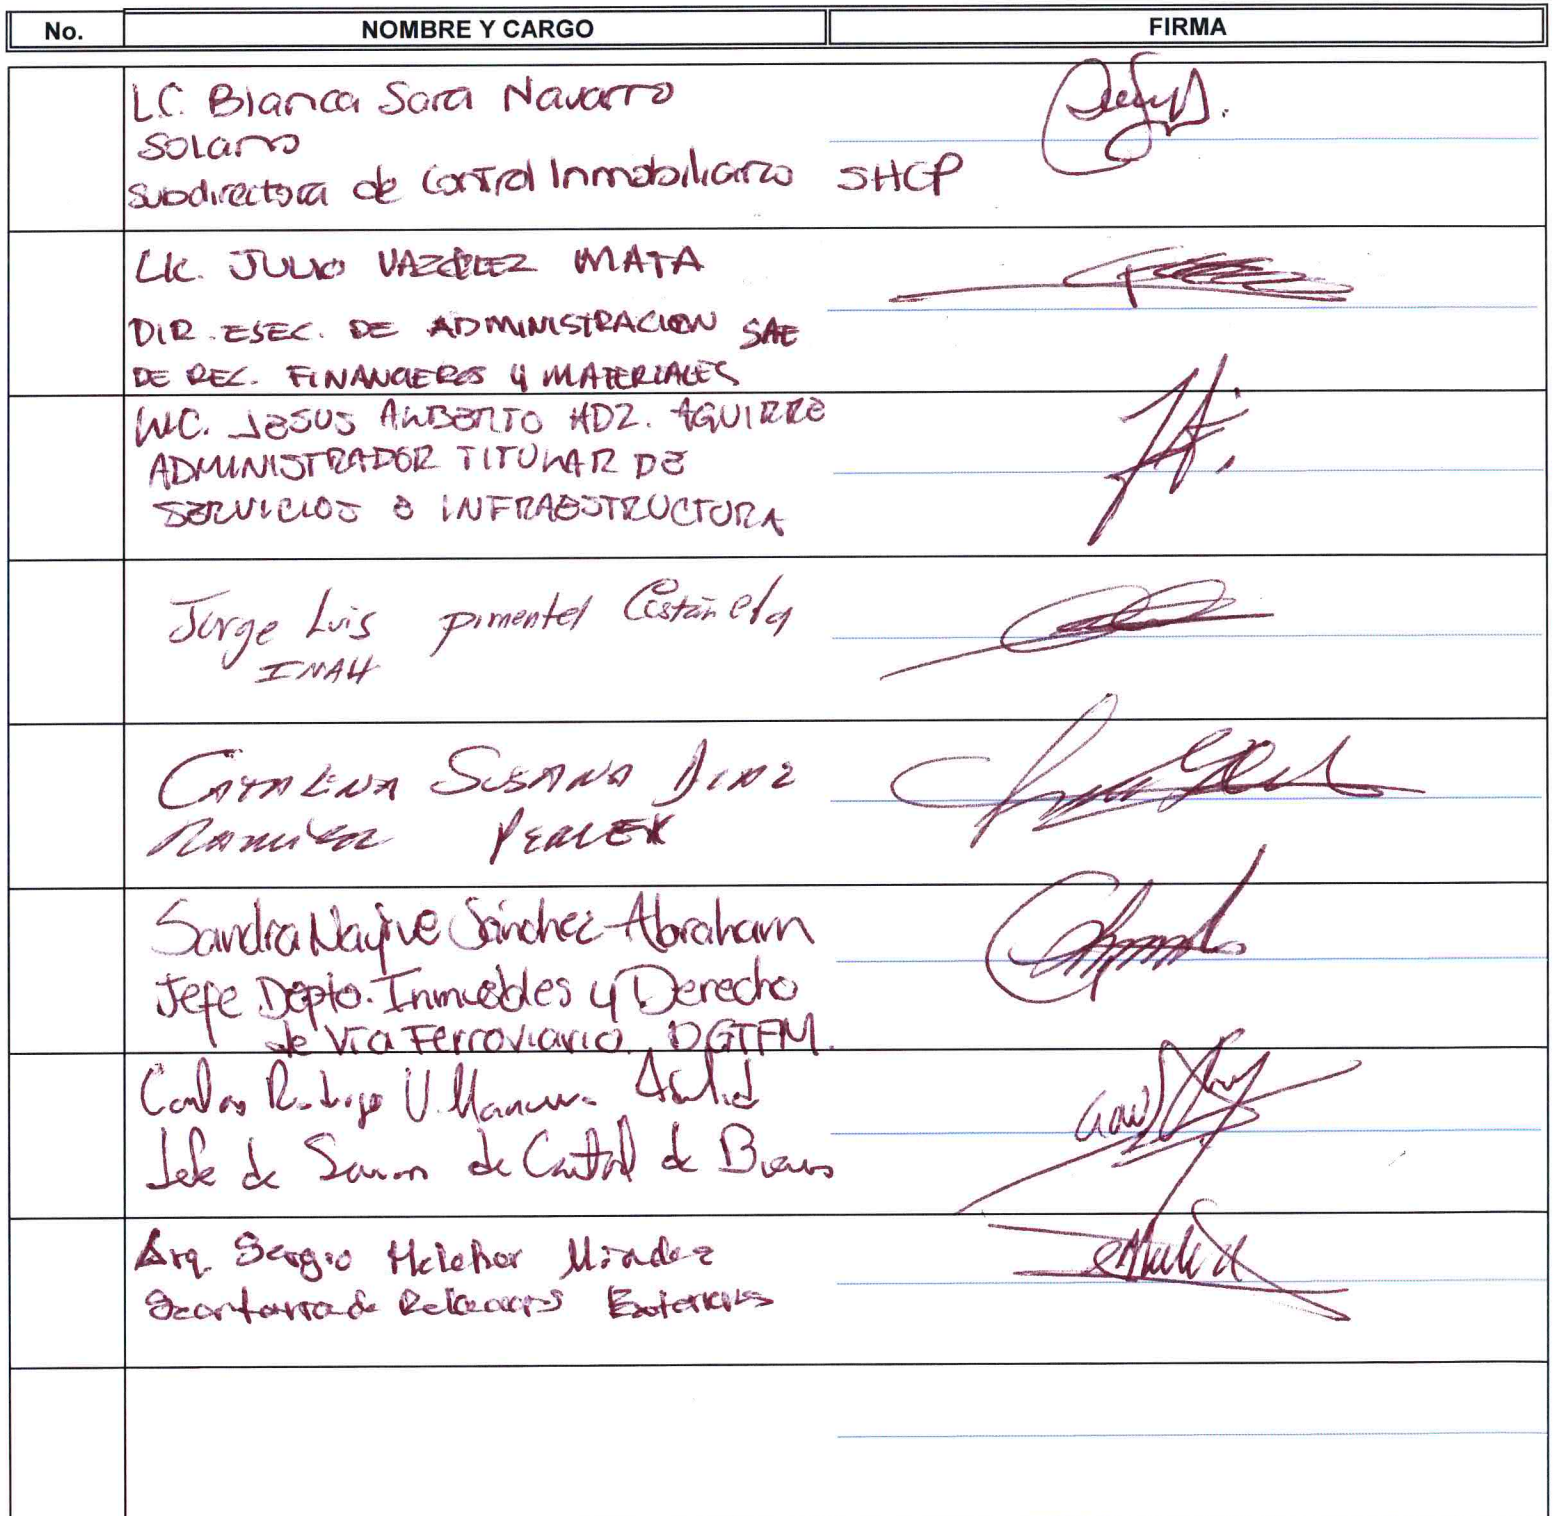 No. NOMBRE Y CARGO FIRMA
L.C. Blanca Sara Navarro
Solano
Subdirectora de Control Inmobiliario SHCP
Lic. JULIO VAZQUEZ MATA
DIR. EJEC. DE ADMINISTRACION SAE
DE REC. FINANCIEROS Y MATERIALES
LIC. JESUS ALBERTO HDZ. AGUIRRE
ADMINISTRADOR TITULAR DE
SERVICIOS E INFRAESTRUCTURA
Jorge Luis pimentel Castañeda
INAH
CATALINA SUSANA DIAZ
RAMIREZ
Sandra Nayive Sánchez Abraham
Jefe Depto. Inmuebles y Derecho
de Vía Ferroviario DGTFM.
Carlos Rodrigo Villanueva
Jefe de de Control de Bienes
Arq. Sergio Melchor Méndez
Secretaria de Relaciones Exteriores